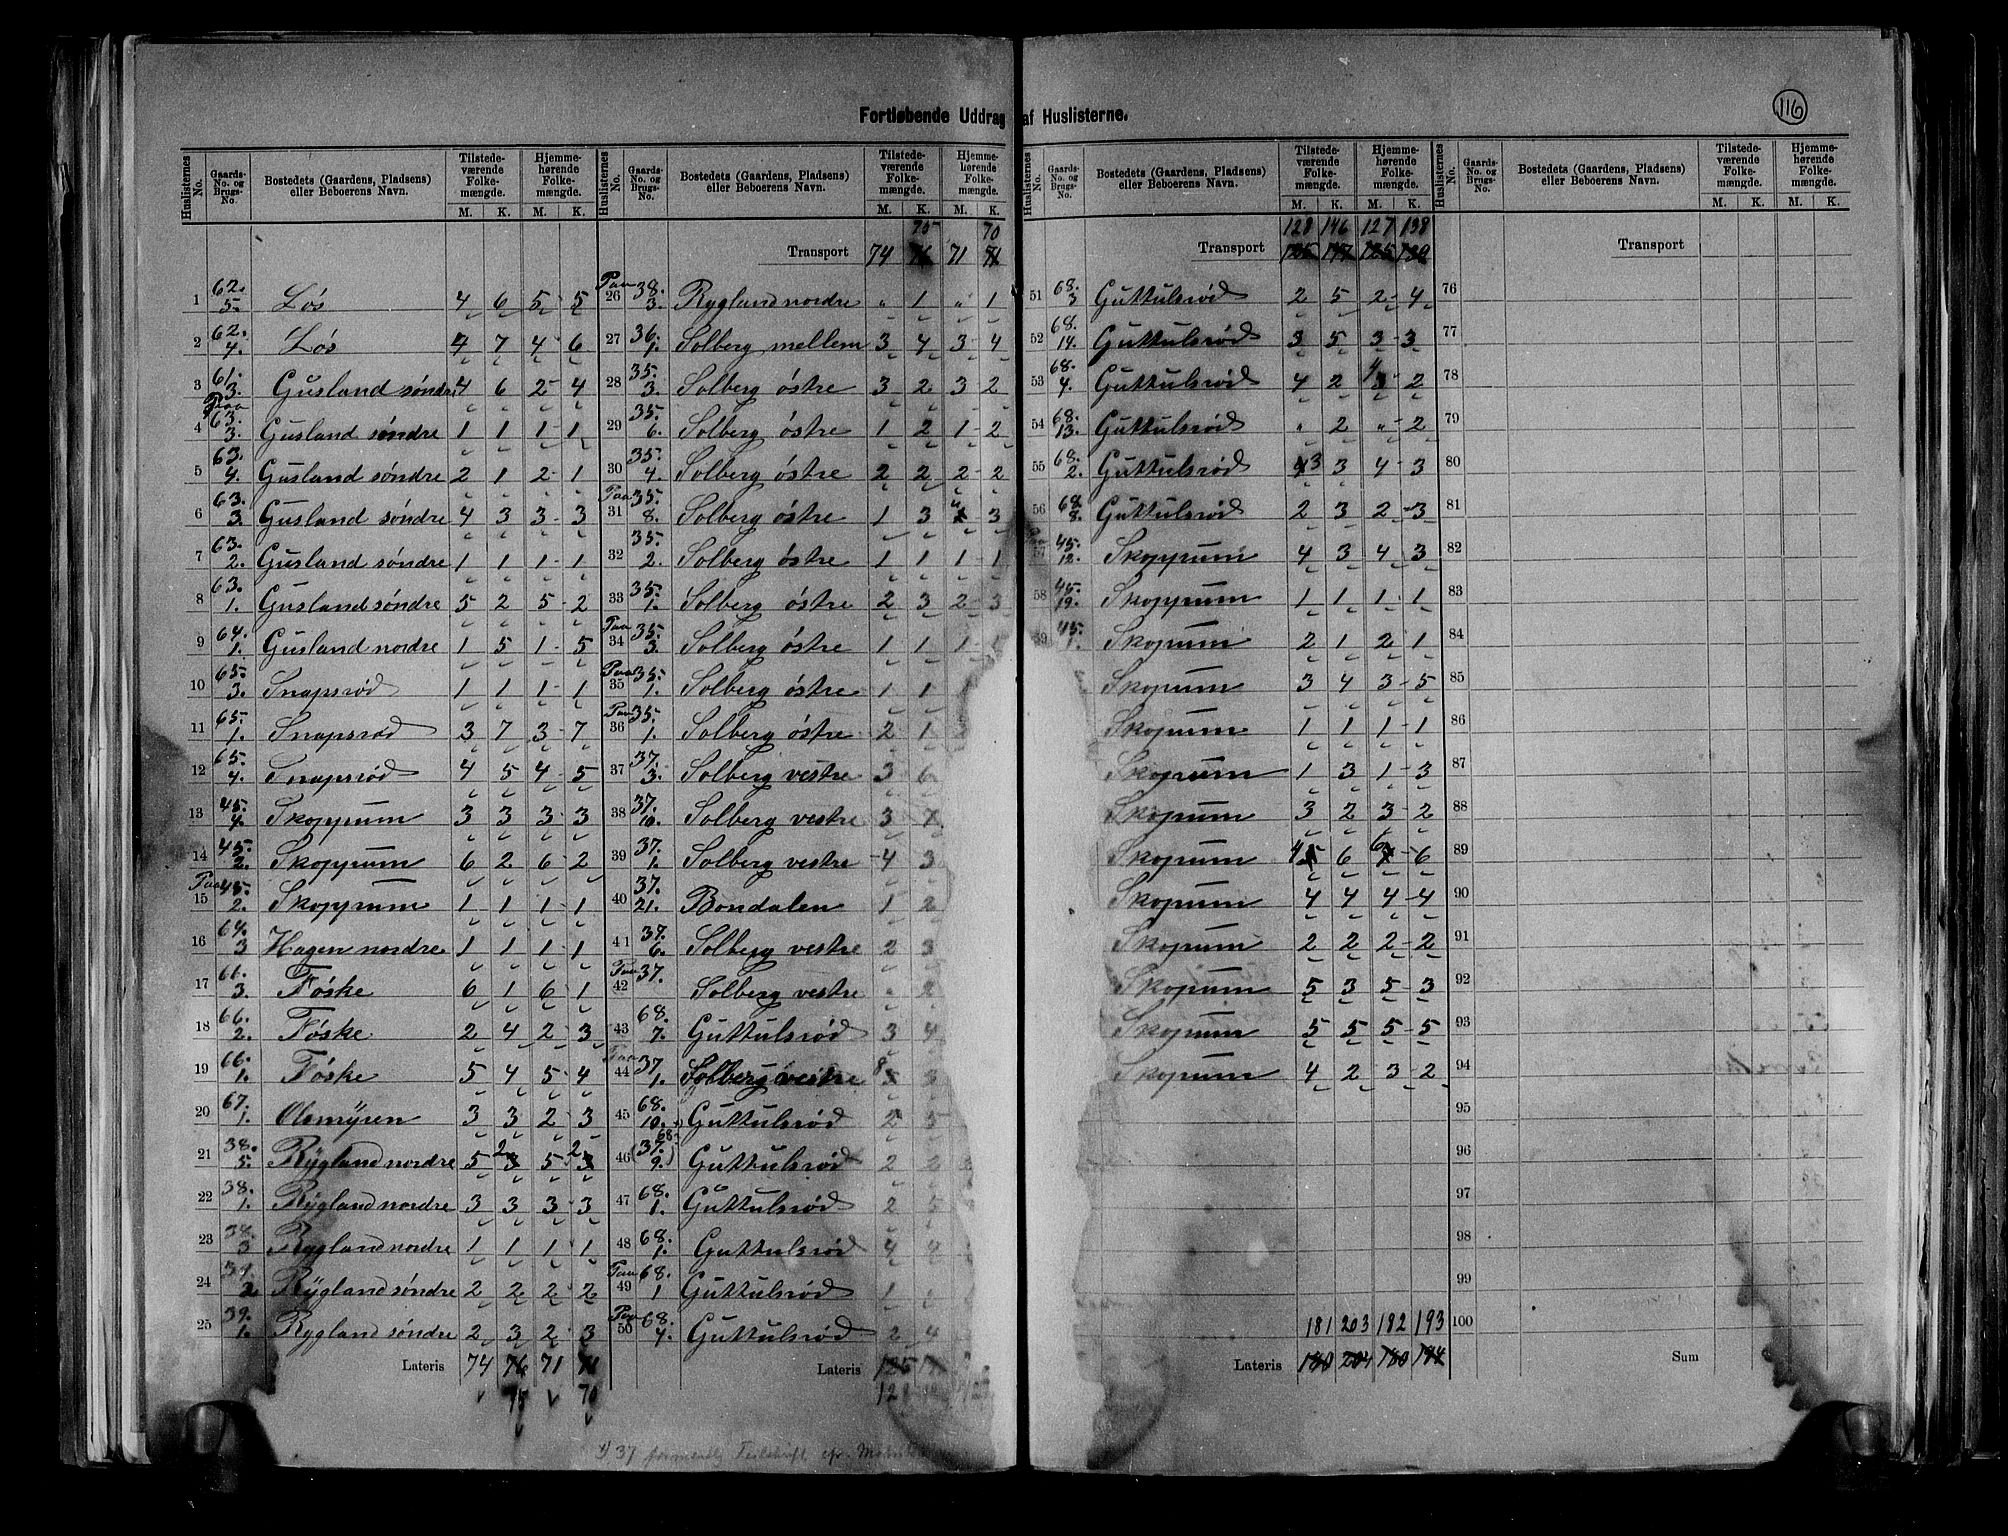 116
Fortløbende Uddrag af Huslisterne.
Huslisternes No. | Gaards-No. og Brugs-No. | Bostedets (Gaardens, Pladsens) eller Beboerens Navn. | Tilstedeværende Folkemængde. M. K. | Hjemmehørende Folkemængde. M. K.
1 | 62. 5. | Løs | 4 | 6 | 5 | 5
2 | 62. 4. | Løs | 4 | 7 | 4 | 6
3 | 61. 3. | Gusland søndre | 4 | 6 | 2 | 4
4 | Paa 63. 3. | Gusland søndre | 1 | 1 | 1 | 1
5 | 63. 4. | Gusland søndre | 2 | 1 | 2 | 1
6 | 63. 3. | Gusland søndre | 4 | 3 | 3 | 3
7 | 63. 2. | Gusland søndre | 1 | 1 | 1 | 1
8 | 63. 1. | Gusland søndre | 5 | 2 | 5 | 2
9 | 64. 1. | Gusland nordre | 1 | 5 | 1 | 5
10 | 65. 3. | Snapsrød | 1 | 1 | 1 | 1
11 | 65. 1. | Snapsrød | 3 | 7 | 3 | 7
12 | 65. 4. | Snapsrød | 4 | 5 | 4 | 5
13 | 45. 4. | Skoppum | 3 | 3 | 3 | 3
14 | 45. 2. | Skoppum | 6 | 2 | 6 | 2
15 | Paa 45. 2. | Skoppum | 1 | 1 | 1 | 1
16 | 64. 3 | Hagen nordre | 1 | 1 | 1 | 1
17 | 66. 3. | Føske | 6 | 1 | 6 | 1
18 | 66. 2. | Føske | 2 | 4 | 2 | 3
19 | 66. 1. | Føske | 5 | 4 | 5 | 4
20 | 67. 1. | Olsmyren | 3 | 3 | 2 | 3
21 | 38. 5. | Rygland nordre | 5 | 2 | 5 | 2
22 | 38. 1. | Rygland nordre | 3 | 3 | 3 | 3
23 | 38. 3 | Rygland nordre | 1 | 1 | 1 | 1
24 | Rygland søndre | 2 | 2 | 2 | 2
25 | 39. 1. | Rygland søndre | 2 | 3 | 2 | 3
Lateris | 74 | 76 | 71 | 71
75 | 70
Huslisternes No. | Gaards-No. og Brugs-No. | Bostedets (Gaardens, Pladsens) eller Beboerens Navn. | Tilstedeværende Folkemængde. M. K. | Hjemmehørende Folkemængde. M. K.
75 | 70
Transport | 74 | 76 | 71 | 71
26 | Paa 38. 3. | Rygland nordre | " | 1 | " | 1
27 | 36. 1. | Solberg mellem | 3 | 4 | 3 | 4
28 | 35. 3. | Solberg østre | 3 | 2 | 3 | 2
29 | 35. 6. | Solberg østre | 1 | 2 | 1 | 2
30 | 35. 4. | Solberg østre | 2 | 2 | 2 | 2
31 | Paa 35. 8. | Solberg østre | 1 | 3 | " | 3
32 | 35. 2. | Solberg østre | 1 | 1 | 1 | 1
33 | 35. 1. | Solberg østre | 2 | 3 | 2 | 3
34 | Paa 35. 3. | Solberg østre | 1 | 1 | 1
35 | Paa 35. 1. | Solberg østre | 1 | 1
36 | Paa 35. 1. | Solberg østre | 2 | 1
37 | 37. 3. | Solberg vestre | 3 | 6
38 | 37. 10. | Solberg vestre | 3
39 | 37. 1. | Solberg vestre | 4 | 3
40 | 37. 21. | Bondalen | 1 | 2
41 | 37. 6. | Solberg vestre | 2 | 3
42 | Paa 37. | Solberg vestre | " | 2
43 | 68. 7. | Guttulsrød | 3 | 4
44 | Paa 37 1. | Solberg vestre
45 | 68. 10. | Guttulsrød | 2 | 5
46 | (37. 68. 9.) | Guttulsrød | 2 | 2
47 | 68. 1. | Guttulsrød | 2 | 5
48 | 68. 1. | Guttulsrød | 4 | 4
49 | Paa 68. 1 | Guttulsrød | 1 | 1
50 | Paa 68. 4. | Guttulsrød | 2 | 4
Lateris | 125
37
Huslisternes No. | Gaards-No. og Brugs-No. | Bostedets (Gaardens, Pladsens) eller Beboerens Navn. | Tilstedeværende Folkemængde. M. K. | Hjemmehørende Folkemængde. M. K.
128 | 146 | 127 | 138
Transport | 125 | 147 | 125 | 139
51 | 68. 3 | Guttulsrød | 2 | 5 | 2 | 4
52 | 68. 14. | Guttulsrød | 3 | 5 | 3 | 3
53 | 68. 4. | Guttulsrød | 4 | 2 | 4 | 2
54 | 68. 13. | Guttulsrød | " | 2 | " | 2
55 | 68. 2. | Guttulsrød | 3 | 3 | 4 | 3
56 | 68 8. | Guttulsrød | 2 | 3 | 2 | 3
57 | Paa 45. 12. | Skoppum | 4 | 3 | 4 | 3
58 | 45. 19. | Skoppum | 1 | 1 | 1 | 1
59 | 45. 1. | Skopum | 2 | 1 | 2 | 1
Skopum | 3 | 4 | 3 | 5
Skopum | 1 | 1 | 1 | 1
Skopum | 1 | 3 | 1 | 3
Skopum | 3 | 2 | 3 | 2
Skopum | 4 | 6 | 6 | 6
Skopum | 4 | 4 | 4 | 4
Skopum | 2 | 2 | 2 | 2
Skopum | 5 | 3 | 5 | 3
Skopum | 5 | 5 | 5 | 5
Skopum | 4 | 2 | 3 | 2
181 | 203 | 182 | 193
Lateris | 180 | 204 | 180 | 194
Huslisternes No. | Gaards-No. og Brugs-No. | Bostedets (Gaardens, Pladsens) eller Beboerens Navn. | Tilstedeværende Folkemængde. M. K. | Hjemmehørende Folkemængde. M. K.
Transport
76
77
78
79
80
81
82
83
84
85
86
87
88
89
90
91
92
93
94
95
96
97
98
99
100
Sum